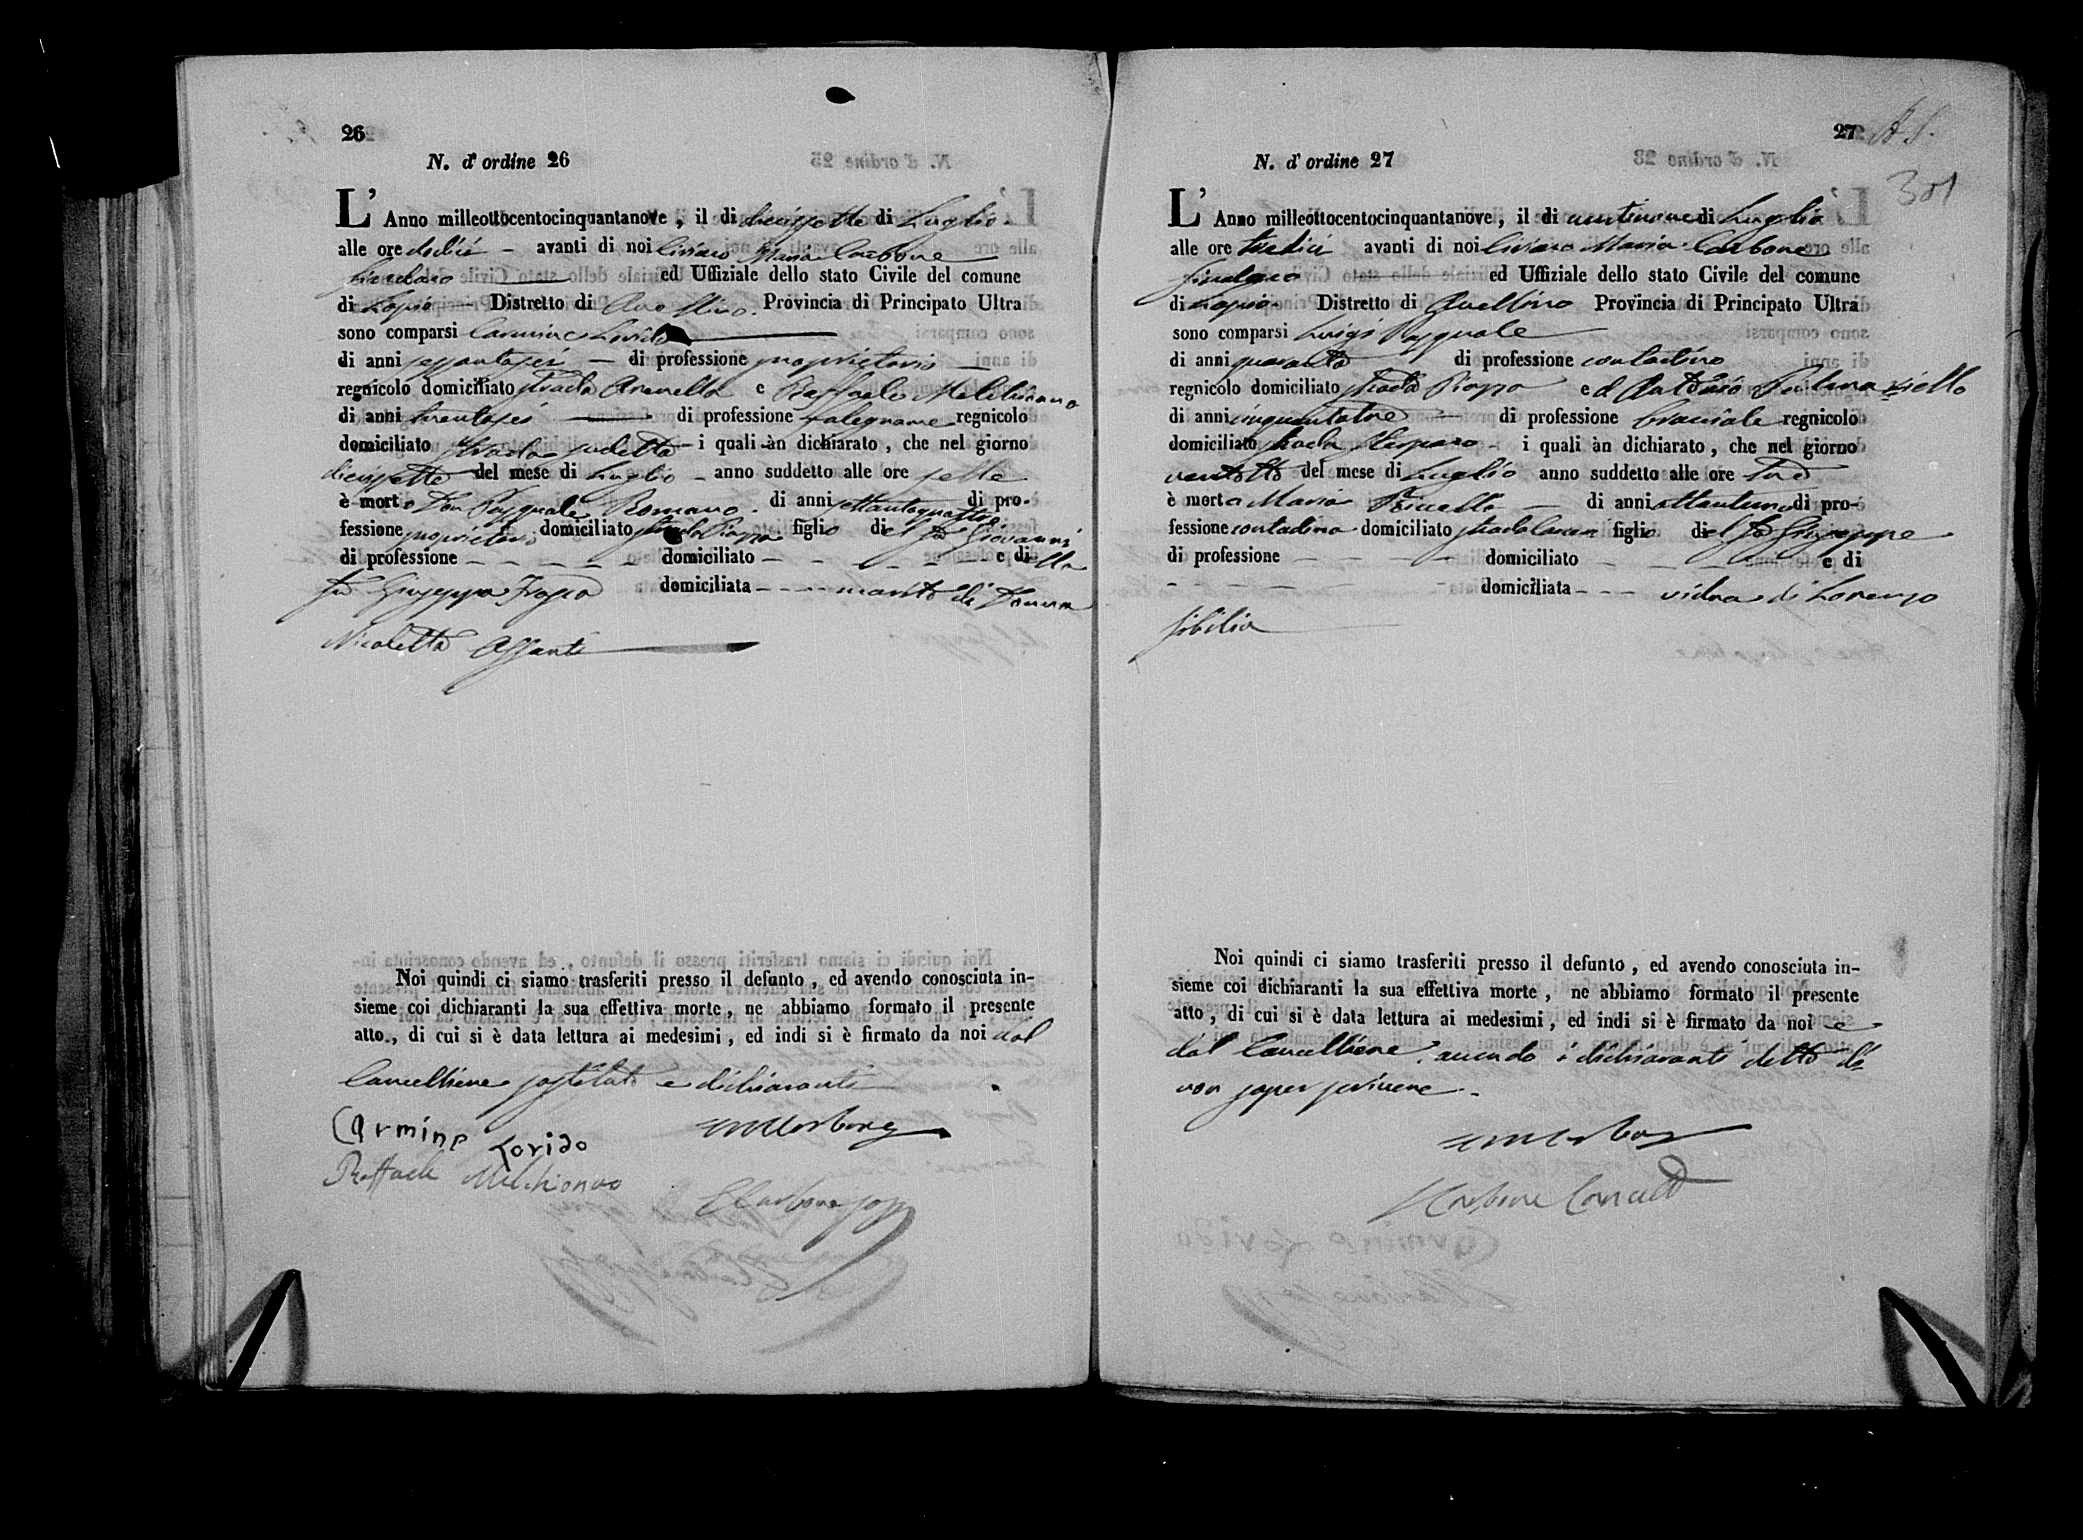 26
N. d' ordine 26
L' Anno milleottocentocinquantanove, il di diecissette di Luglio
alle ore dodici avanti di noi Ciriaco Maria Carbone
Sindaco ed Uffiziale dello stato Civile del comune
di Lapio Distretto di Avellino. Provincia di Principato Ultra
sono comparsi Carmine Lovido
di anni sessantasei di professione proprietario
regnicolo domiciliato strada Aranella e Raffaele Melchionno
di anni trentasei di professione falegname regnicolo
domiciliato strada sudetta i quali àn dichiarato, che nel giorno
diecissette del mese di Luglio anno suddetto alle ore sette
è morto Don Pasquale Romano. di anni settantaquattro di pro-
fessione proprietario domiciliato strada Piazza figlio del fu Giovanni
di professione domiciliato e della
fu Giuseppa domiciliata marito di Donna
Nicoletta
Noi quindi ci siamo trasferiti presso il defunto, ed avendo conosciuta in-
sieme coi dichiaranti la sua effettiva morte, ne abbiamo formato il presente
atto., di cui si è data lettura ai medesimi, ed indi si è firmato da noi dal
Cancelliere sostituto e dichiaranti
Carmine Lovido
Raffaele Melchionno
27
301
N. d' ordine 27
L' Anno milleottocentocinquantanove, il di ventinove di Luglio
alle ore tredici avanti di noi Ciriaco Maria Carbone
Sindaco ed Uffiziale dello stato Civile del comune
di Lapio Distretto di Avellino Provincia di Principato Ultra
sono comparsi Luigi Pasquale
di anni quaranta di professione contadino
regnicolo domiciliato strada Piazza ed Antonio
di anni cinquantatre di professione bracciale regnicolo
domiciliato strada i quali àn dichiarato, che nel giorno
ventotto del mese di Luglio anno suddetto alle ore tre
è morta Maria di anni ottantuno di pro-
fessione contadina domiciliato strada figlio del fu Giuseppe
di professione domiciliato e di
domiciliata vidua di Lorenzo
Sibilia
Noi quindi ci siamo trasferiti presso il defunto, ed avendo conosciuta in-
sieme coi dichiaranti la sua effettiva morte, ne abbiamo formato il presente
atto, di cui si è data lettura ai medesimi, ed indi si è firmato da noi e
dal Cancelliere, avendo i dichiaranti detto di
non saper scrivere.